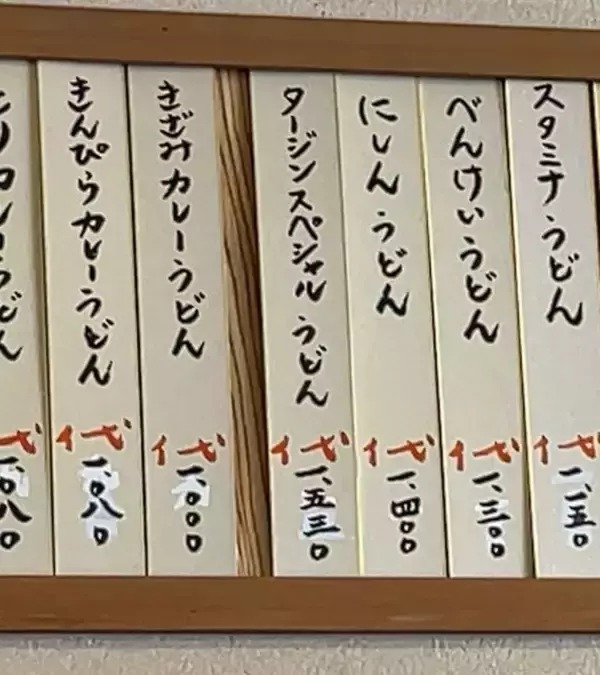 スタミナうどん
代一、一五〇
べんけいうどん
代一、三〇〇
にしんうどん
代一、四〇〇
タージンスペシャルうどん
代一、五三〇
きざみカレーうどん
代一、〇〇〇
きんぴらカレーうどん
代一、〇八〇
カレーうどん
代一、〇八〇